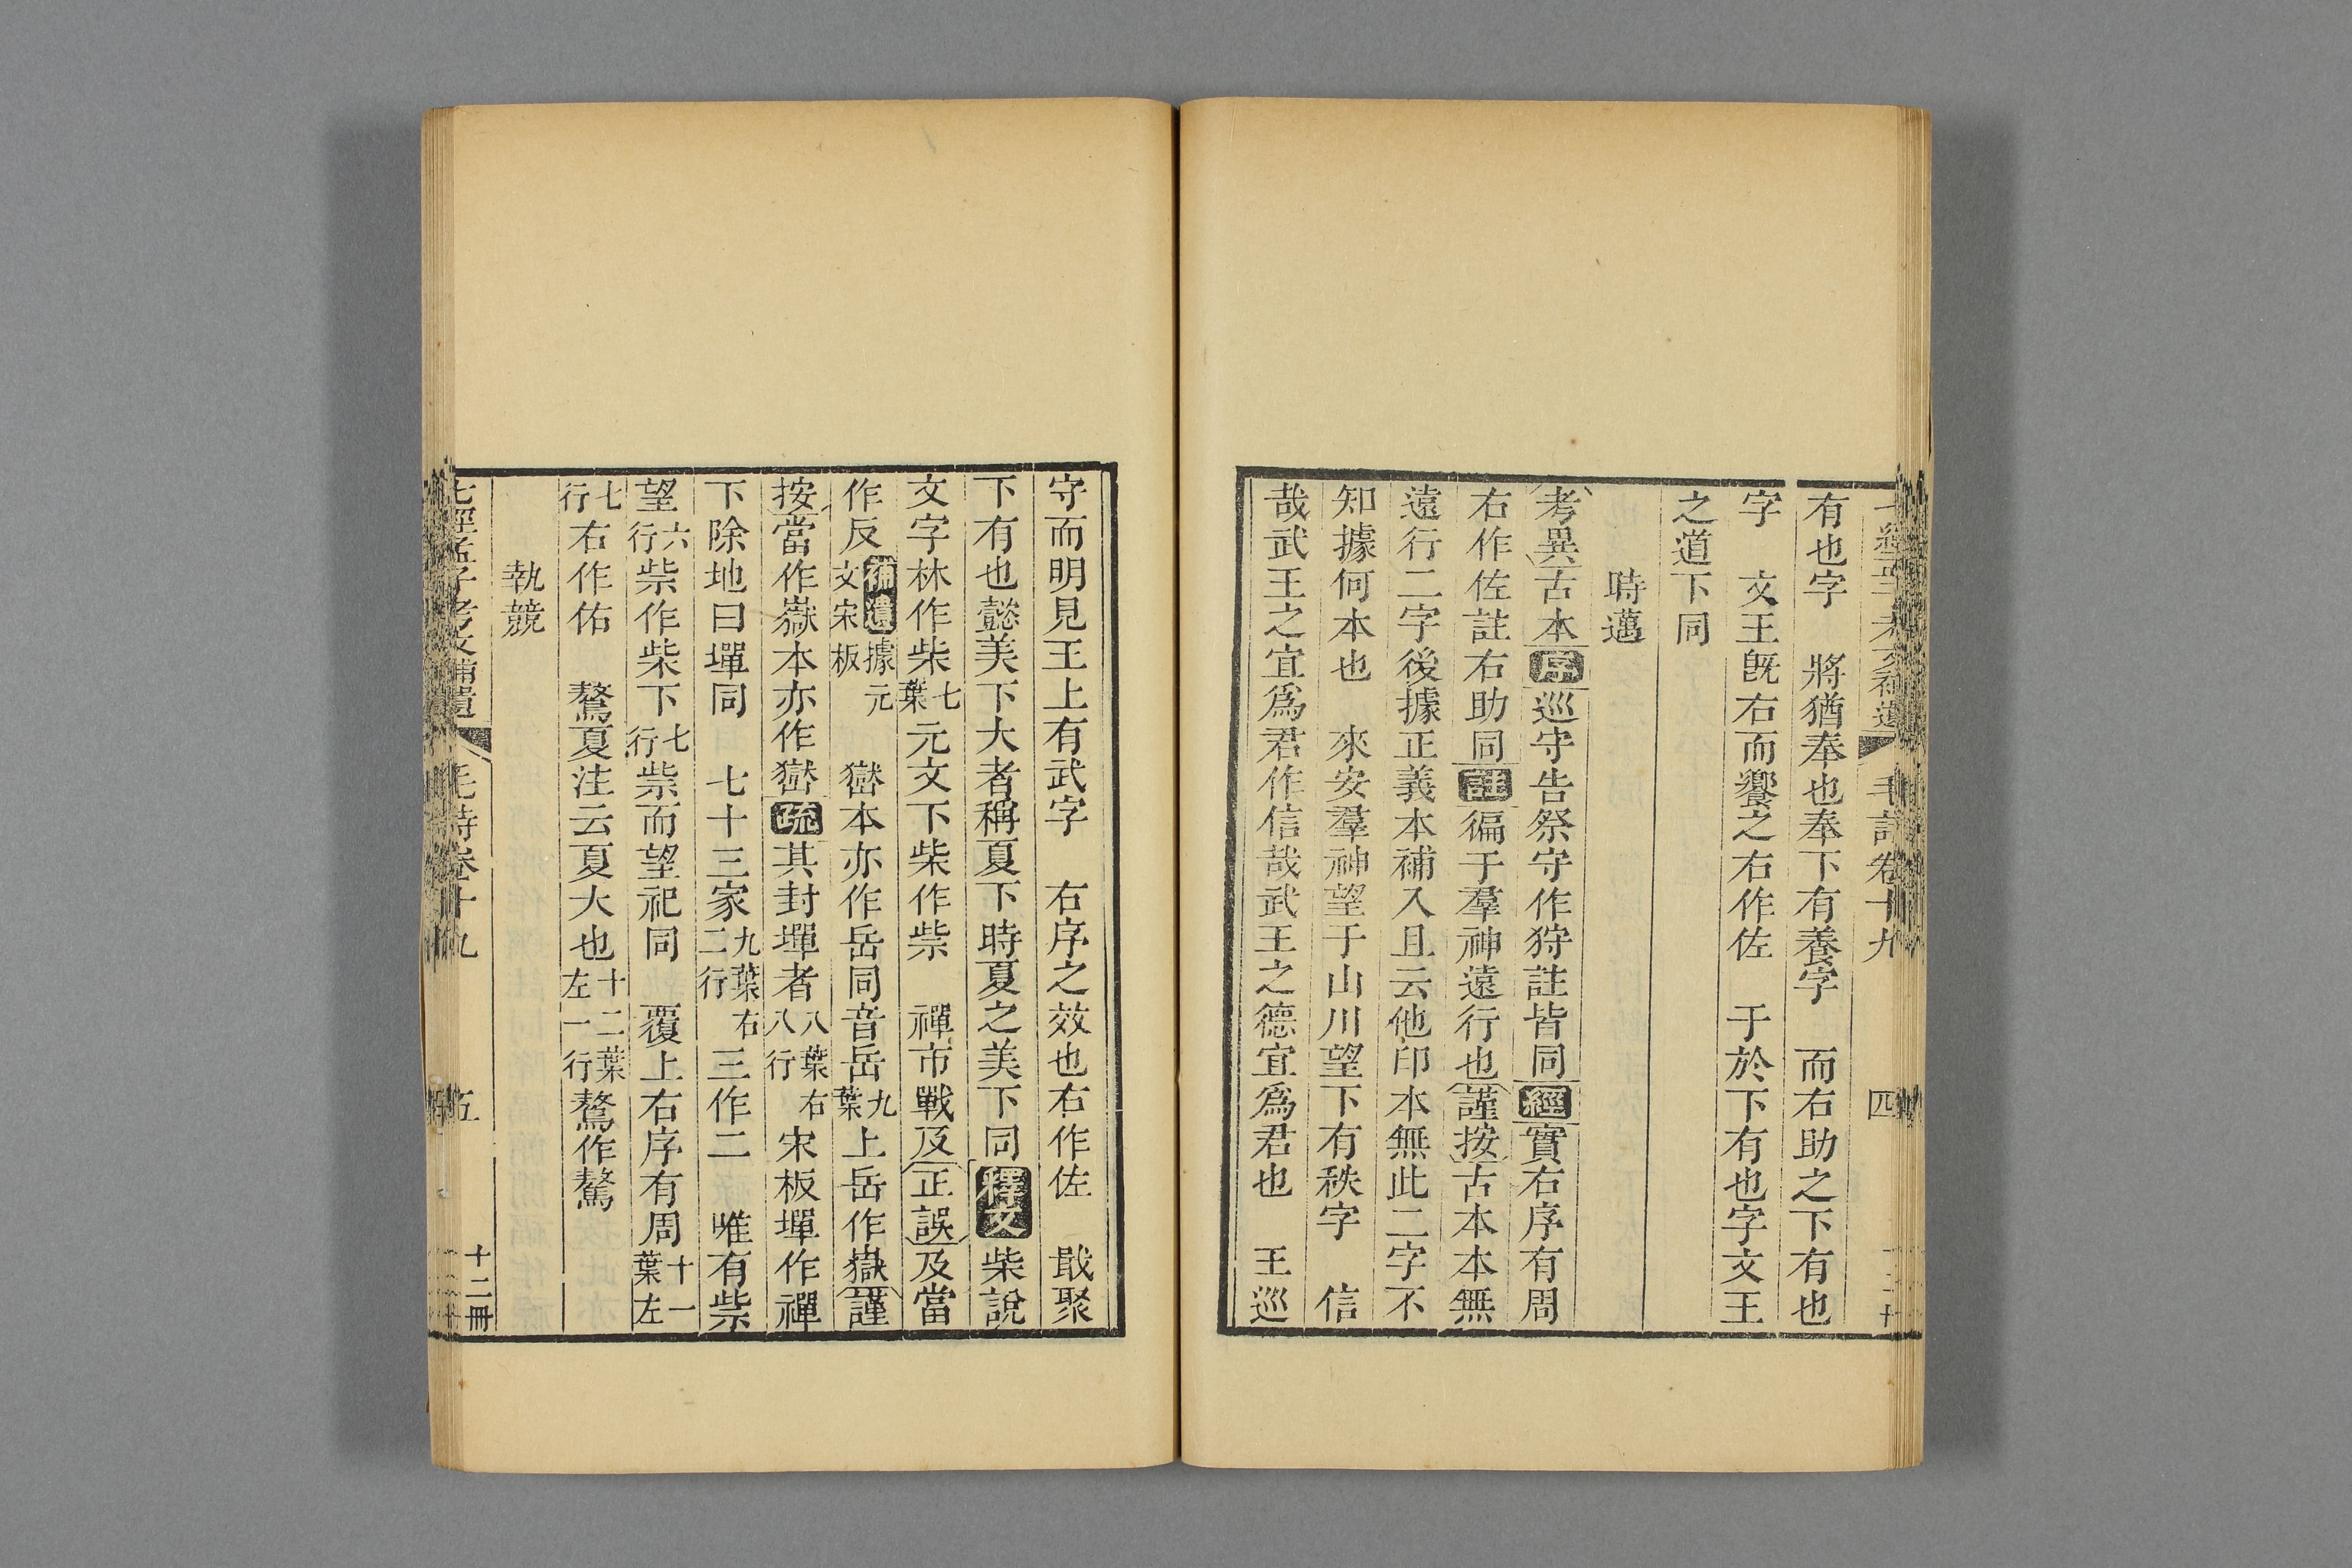 七經孟子考文補遺 毛詩卷十九 四
有也字　將猶奉也奉下有養字　而右助之下有也
字　文王旣右而饗之右作佐　于於下有也字文王
之道下同
時邁
考異古本序巡守告祭守作狩註皆同經實右序有周
右作佐註右助同註徧于羣神遠行也謹按古本本無
遠行二字後據正義本補入且云他印本無此二字不
知據何本也　來安羣神望于山川望下有秩字　信
哉武王之宜爲君作信哉武王之德宜爲君也　王巡
守而明見王上有武字　右序之效也右作佐　戢聚
下有也懿美下大者稱夏下時夏之美下同釋文柴說
文字林作柴七葉元文下柴作祡　禪市戰及正誤及當
作反補遺據元文宋板　嶽本亦作岳同音岳九葉上岳作嶽謹
按當作嶽本亦作嶽疏其封墠者八葉右八行宋板墠作禪
下除地曰墠同　七十三家九葉右二行三作二　唯有祡
望六行祡作柴下七行祡而望祀同　覆上右序有周十一葉左
七行右作佑　鶩夏注云夏大也十二葉左一行鶩作驁
執競
七經孟子考文補遺 毛詩卷十九 五 十二冊